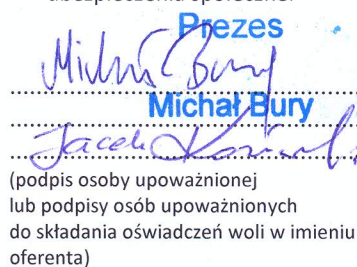 ubezpieczenia społeczne.
Prezes
Michał Bury
Michał Bury
Jacek
(podpis osoby upoważnionej
lub podpisy osób upoważnionych
do składania oświadczeń woli w imieniu
oferenta)